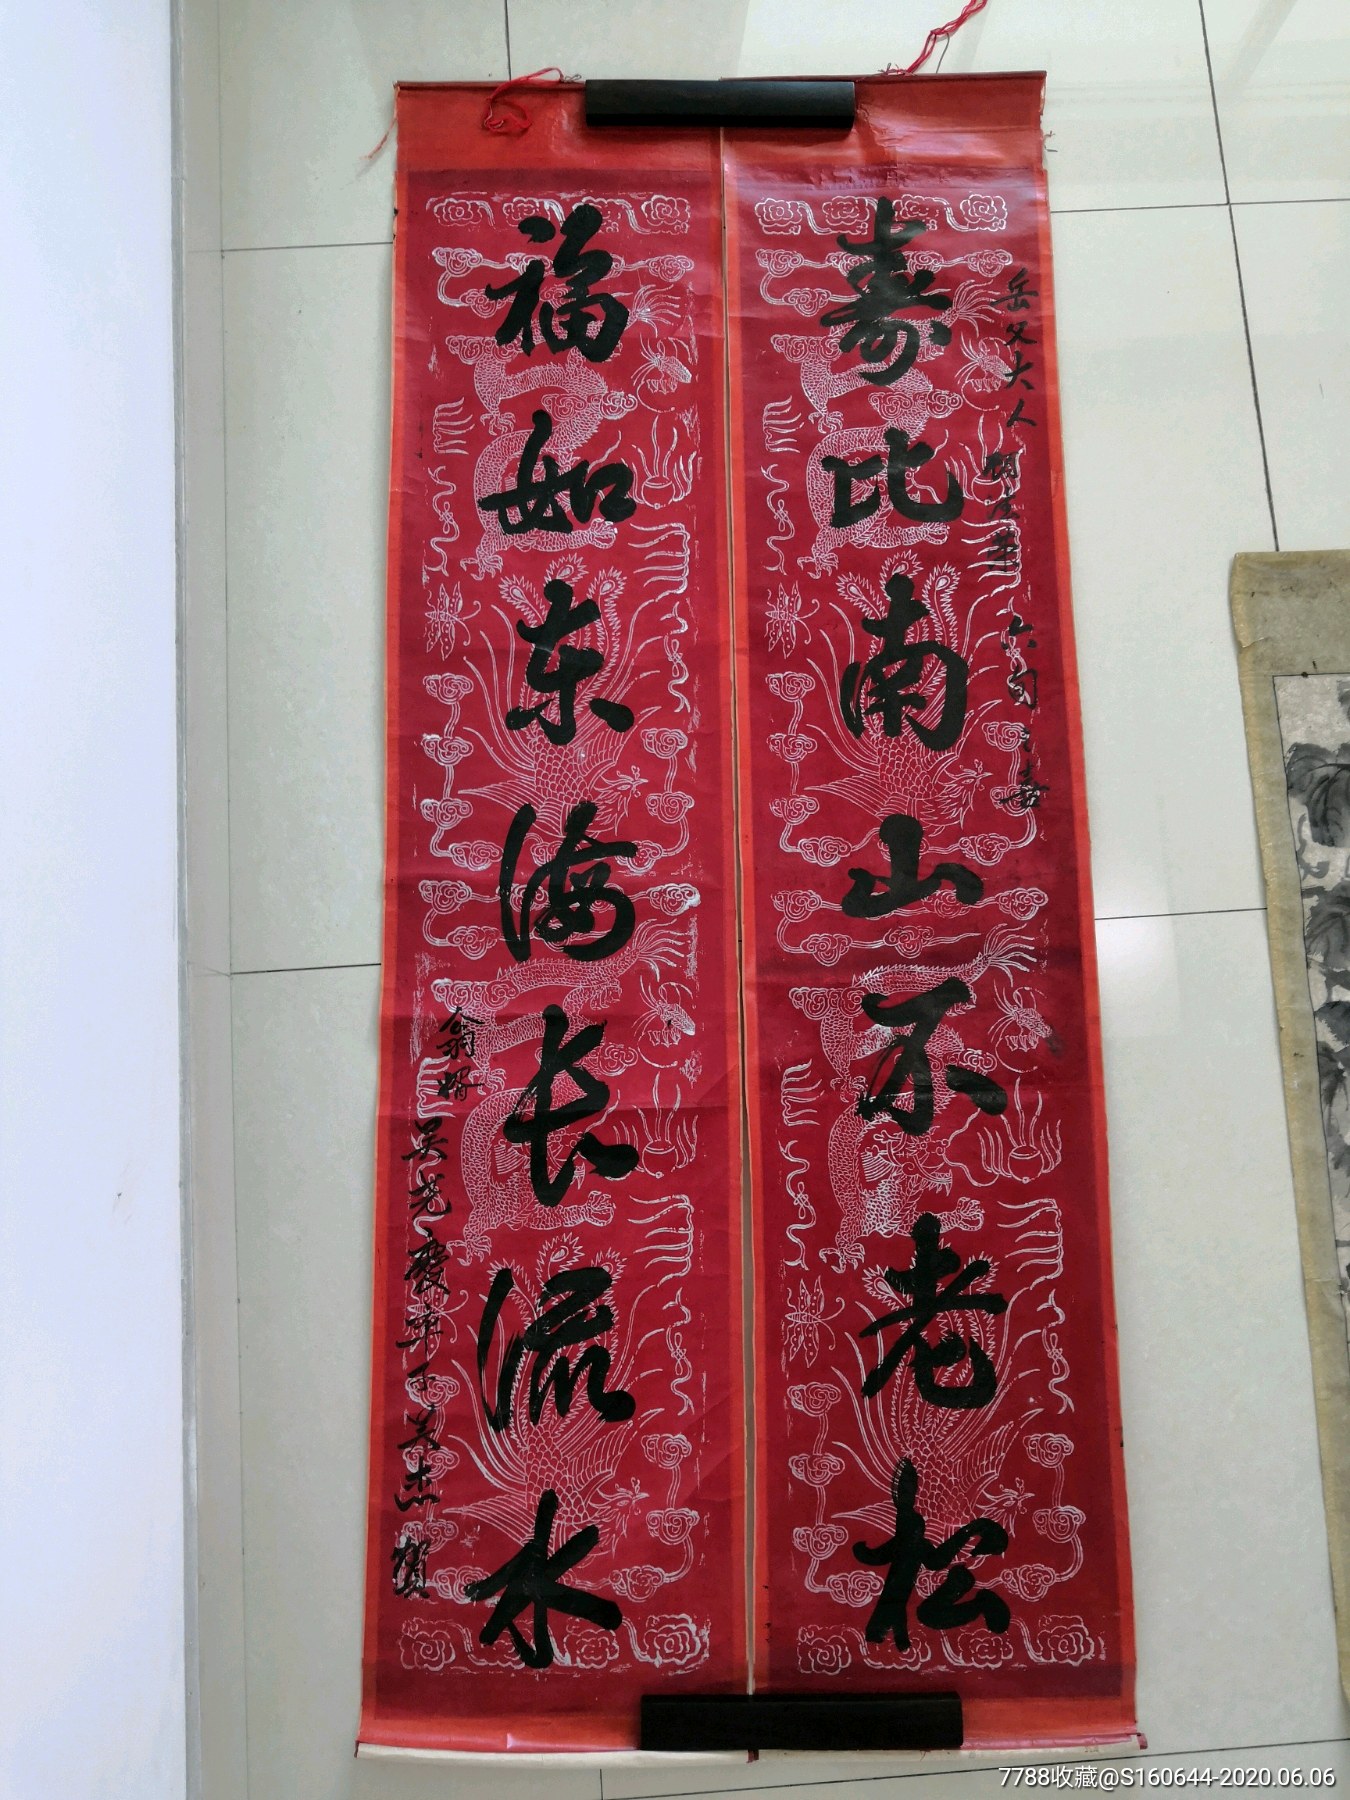 岳父大人 六旬之寿
寿比南山不老松
福如东海长流水
翁婿
吴光庆率子吴杰贺
7788收藏@S160644-2020.06.06